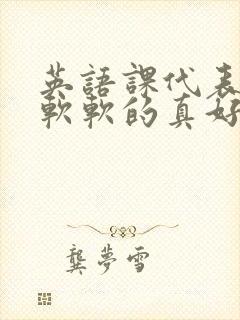 英語課代表
軟軟的真好
龔夢雪